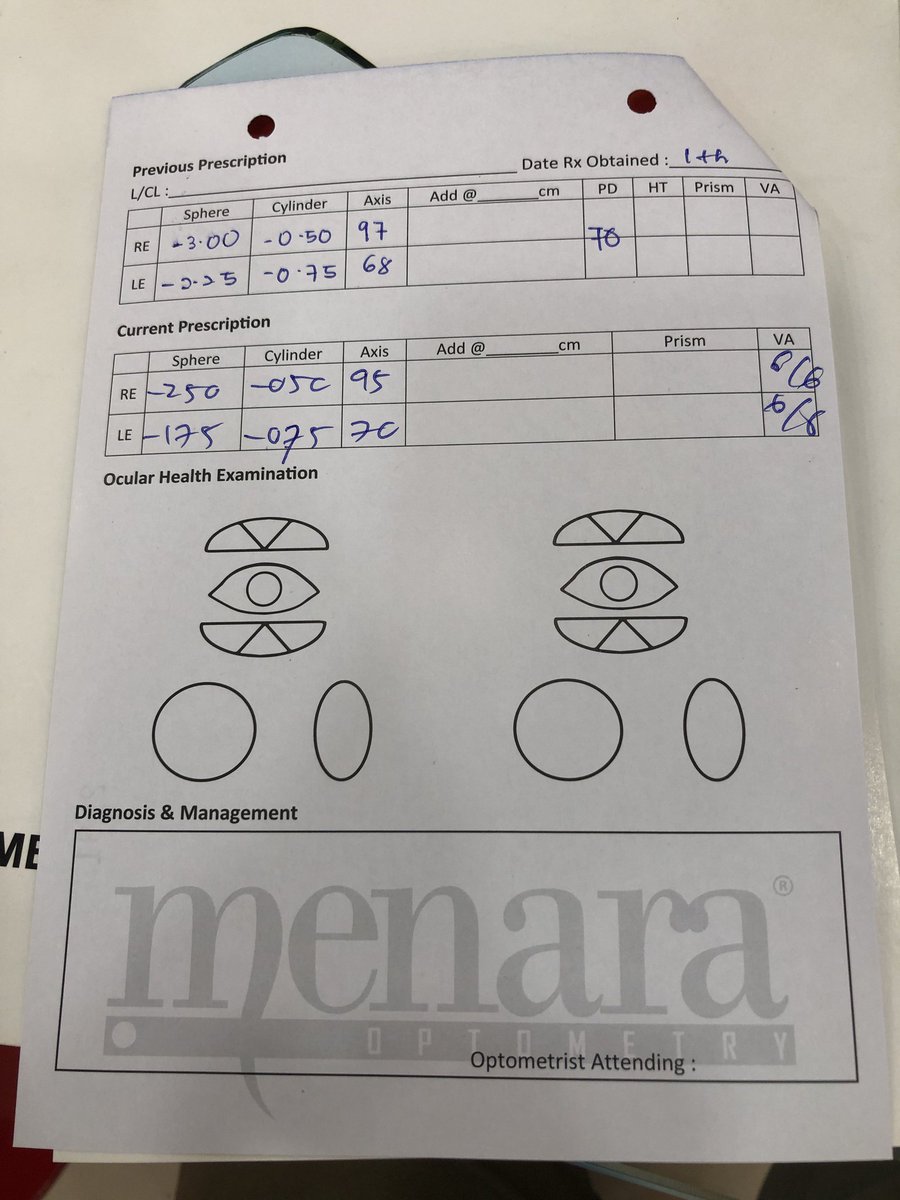 Previous Prescription
Date Rx Obtained : 1th
L/CL :
Sphere Cylinder Axis Add @ cm PD HT Prism VA
RE -3.00 -0.50 97
70
LE -2.25 -0.75 68
Current Prescription
Sphere Cylinder Axis Add @ cm Prism VA
RE -250 -050 95 6/6
LE -175 -075 70
Ocular Health Examination
Diagnosis & Management
ME
menara®
OPTOMETRY
Optometrist Attending :